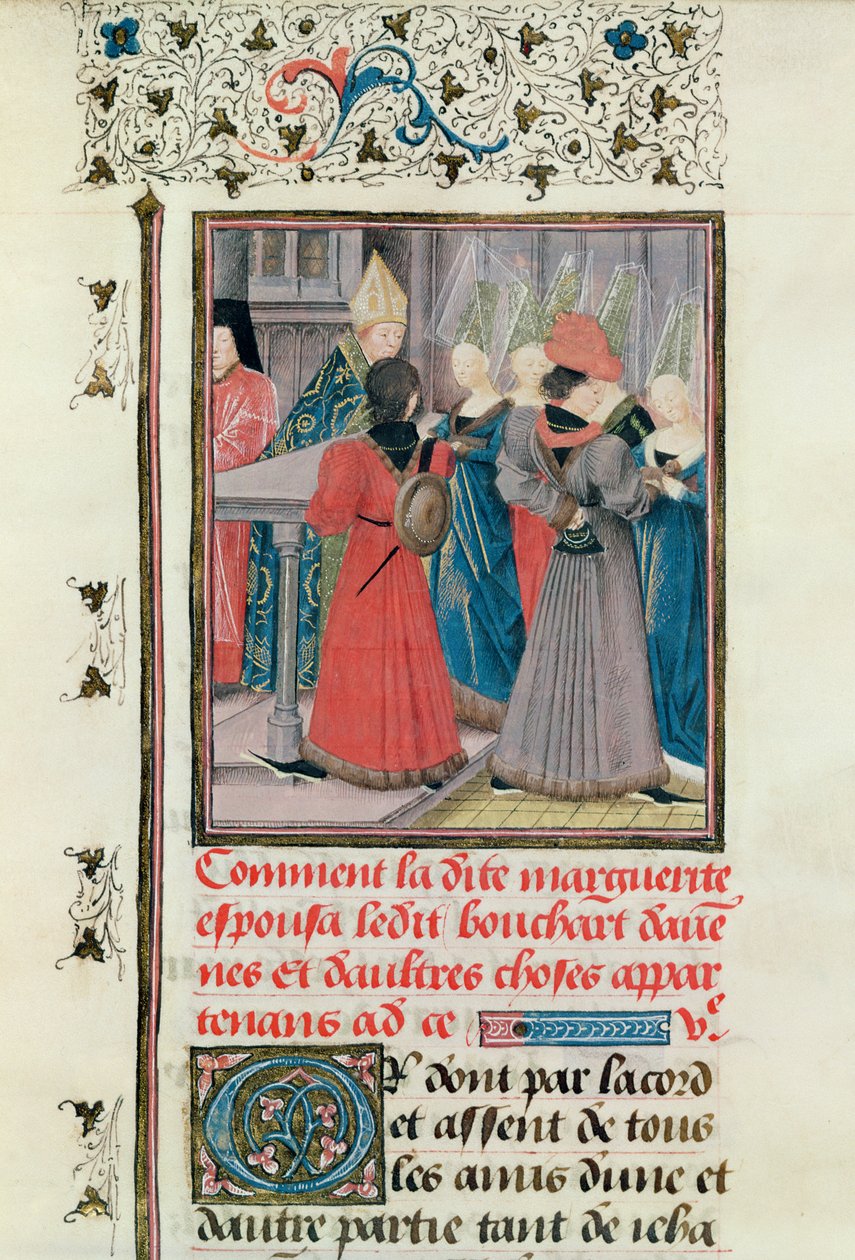 Comment la dite marguerite
espousa ledit bouchart dave
nes et daultres choses appar
tenans ad ce ve
Or dont par lacord
et assent de tous
les amis dune et
dautre partie tant de ieha